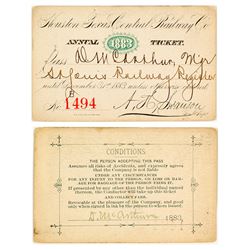 Houston & Texas Central Railway Co
ANNUAL 1883 TICKET.
Pass D McArthur, Mgr
St Louis Railway Register
until December 31st 1883 unless otherwise ordered
No. 1494
A. H. Swanson
CONDITIONS.
THE PERSON ACCEPTING THIS PASS
Assumes all risks of Accidents, and expressly agrees
that the Company is not liable
UNDER ANY CIRCUMSTANCES
FOR ANY INJURY TO THE PERSON, OR LOSS OR DAM-
AGE FOR BAGGAGE OF THE PERSON USING IT.
If presented by any other than the individual named thereon,
the Conductor will take up this ticket
AND COLLECT FARE.
Revocable at the pleasure of the Company, and good
only when signed in ink by the person to whom issued
D. McArthur 1883